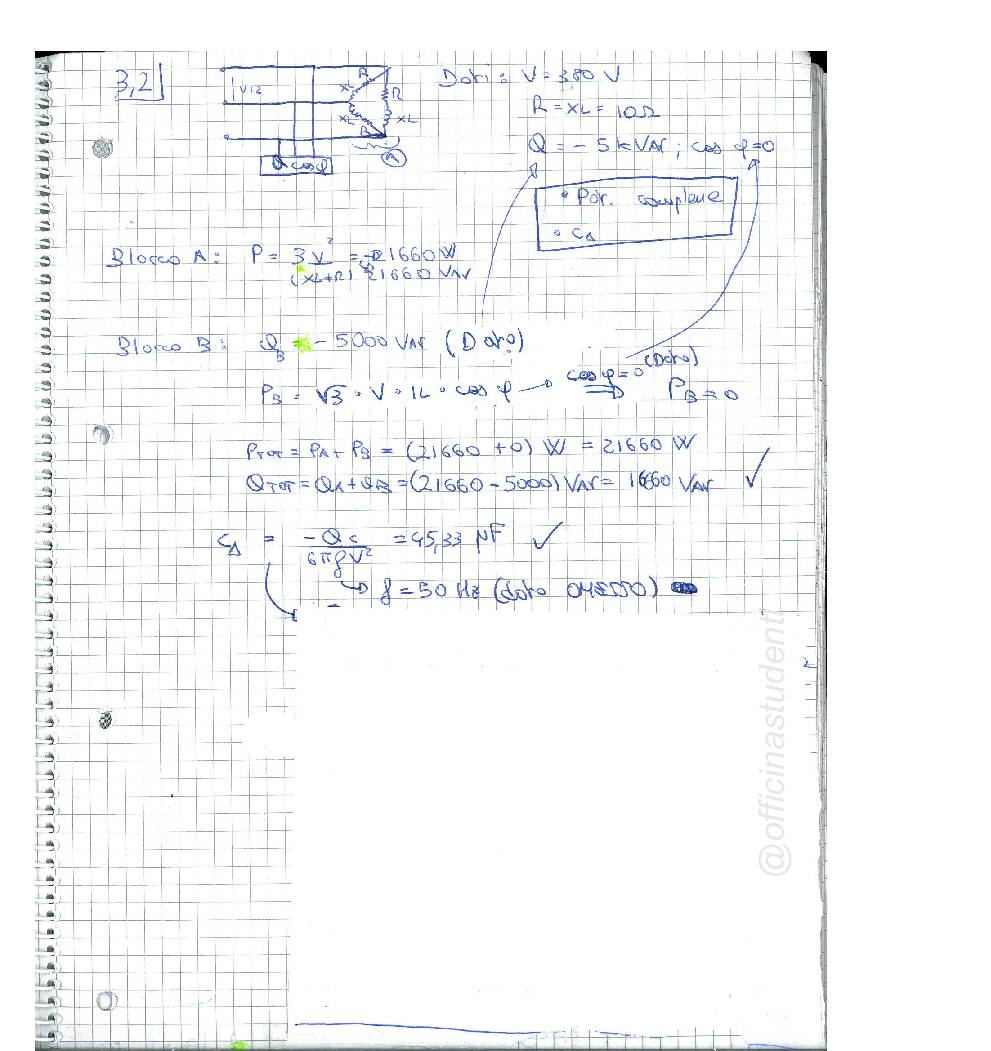 3,2
V12
R
XL
R
XL
XL
R
A
Q cosφ
Dati: V = 380 V
R = XL = 10Ω
Q = - 5 kVAr ; cos φ=0
• Pot. complexe
• CΔ
Blocco A: P = 3V² = 21660 W
(XL+R) 21660 VAr
Blocco B: QB = - 5000 VAr (Dato)
PB = √3 · V · IL · cos φ → cos φ=0 (Dato) ⇒ PB = 0
PTOT = PA + PB = (21660 + 0) W = 21660 W
QTOT = QA + QB = (21660 - 5000) VAr = 16660 VAr ✓
CΔ = -Qc / 6πfV² = 45,33 μF ✓
→ f = 50 Hz (dato OMESSO)
@officinastudenti